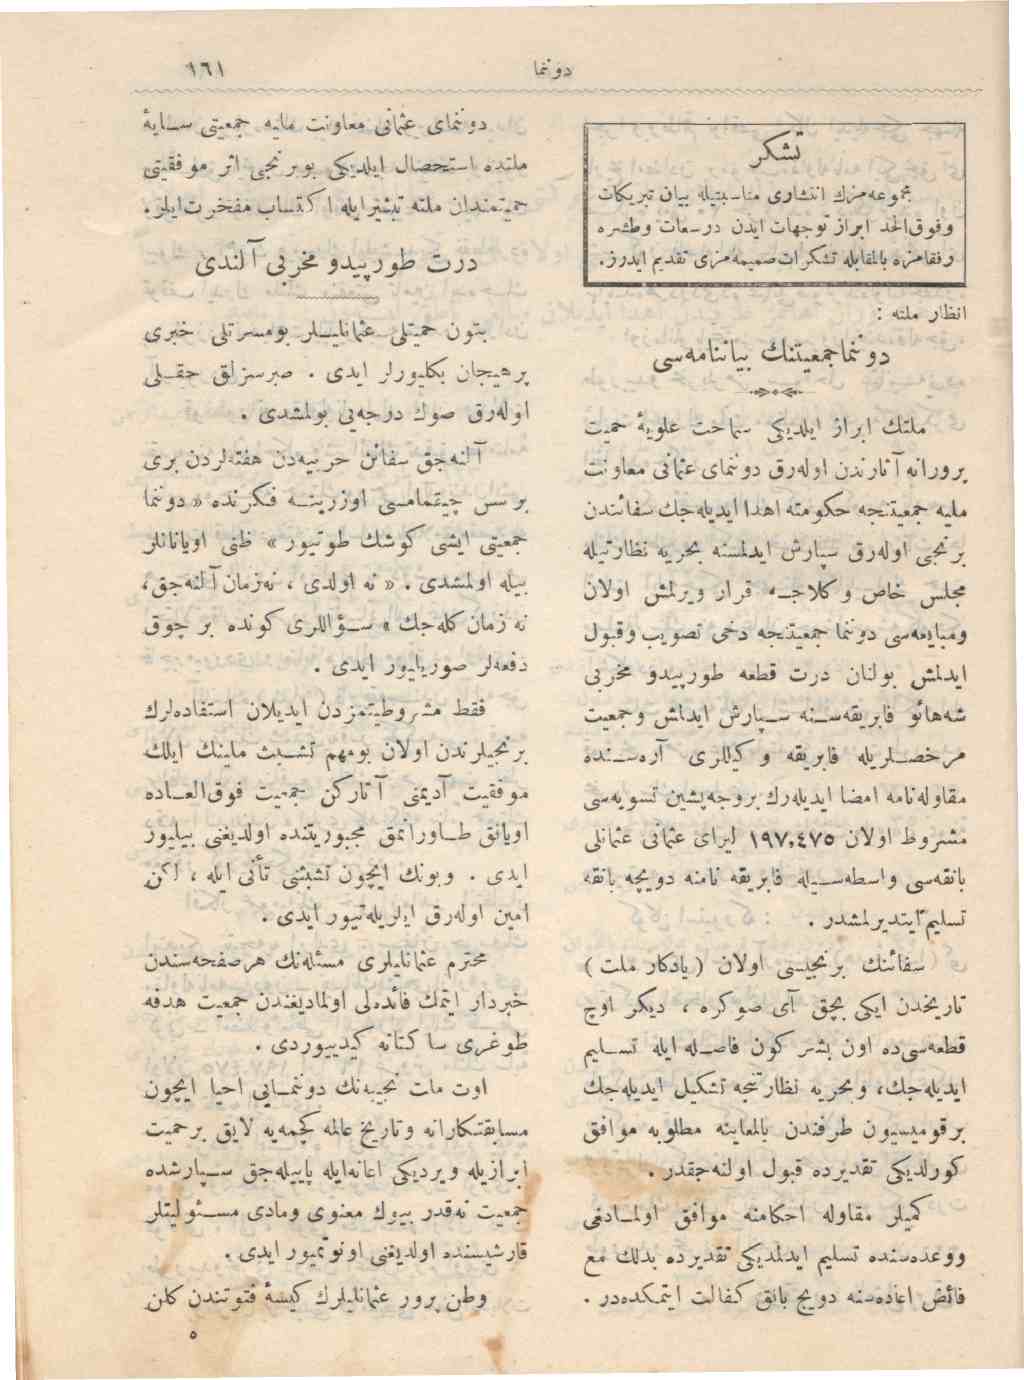 دوننما
١٦١
تشكر
مجموعه‌مزك انتشارى مناسبتيله بيان تبريكات
وفوق‌الحد ابراز توجهات ايدن درسعات وطشره
رفقامزه بالمقابله تشكرات صميميه‌مزى تقديم ايدرز.
انظار ملته :
دوننما جمعيتنك بياننامه‌سى
ملتك ابراز ايلديكى سماحت علويۀ حميت
پرورانه آثارندن اوله‌رق دوننماى عثمانى معاونت
مليه جمعيتنجه حكومته اهدا ايديله‌جك سفائندن
برنجى اوله‌رق سپارش ايدلمسنه بحريه نظارتيله
مجلس خاص وكلاجه قرار ويرلمش اولان
ومبايعه‌سى دوننما جمعيتنجه دخى تصويب وقبول
ايدلمش بولنان درت قطعه طورپيدو مخربى
شه‌هاثو فابريقه‌سنه سپارش ايدلمش وجمعيت
مرخصلريله فابريقه وكيللرى آره‌سنده
مقاوله‌نامه امضا ايديله‌رك بروجه پشين تسويه‌سى
مشروط اولان ١٩٧,٤٧٥ ليراى عثمانى عثمانلى
بانقه‌سى واسطه‌سيله فابريقه نامنه دويچه بانقه
تسليم ايتديرلمشدر .
سفائنك برنجيسى اولان (يادكار ملت)
تاريخدن ايكى بچق آى صوكره ، ديكر اوچ
قطعه‌سى‌ده اون بشر كون فاصله ايله تسليم
ايديله‌جك، وبحريه نظارتنجه تشكيل ايديله‌جك
برقوميسيون طرفندن بالمعاينه مطلوبه موافق
كورلديكى تقديرده قبول اولنه‌جقدر .
كميلر مقاوله احكامنه موافق اولمادغى
ووعده‌سنده تسليم ايدلمديكى تقديرده بدلك مع
فائض اعاده‌سنه دويچ بانق كفالت ايتمكده‌در .
دوننماى عثمانى معاونت مليه جمعيتى سايۀ
ملتده استحصال ايلديكى بوبرنجى اثر موفقيتى
حميتمندان ملته تبشير ايله اكتساب مفخرت ايلر.
درت طورپيدو مخربى آلندى
بتون حميتلى عثمانليلر بومسرتلى خبرى
پرهيجان بكليورلر ايدى . صبرسزلق حقلى
اوله‌رق صوك درجه‌يى بولمشدى .
آلنه‌جق سفائن حربيه‌دن هفته‌لردن برى
بر سس چيقمامسى اوزرينه فكرنده « دوننما
جمعيتى ايشى كوشك طوتيور » ظنى اويانانلر
بيله اولمشدى . « نه اولدى ، نه‌زمان آلنه‌جق،
نه زمان كله‌جك » سؤاللرى كونده بر چوق
دفعه‌لر صوريليور ايدى .
فقط مشروطيتمزدن ايديلان استفاده‌لرك
برنجيلرندن اولان بومهم تشبث ملينك ايلك
موفقيت آديمنى آتاركن جمعيت فوق‌العاده
اويانق طاورانمق مجبوريتنده اولديغنى بيليور
ايدى . وبونك ايچون تشبثنى تأنى ايله ، لكن
امين اوله‌رق ايلريله‌تيور ايدى .
محترم عثمانليلرى مسئله‌نك هرصفحه‌سندن
خبردار ايتمك فائده‌لى اولماديغندن جمعيت هدفه
طوغرى ساكتانه كيدييوردى .
اوت ملت نجيبه‌نك دوننمايى احيا ايچون
مسابقتكارانه وتاريخ عالمه كچمه‌يه لايق برحميت
ابرازيله ويرديكى اعانه‌ايله پاپيله‌جق سپارشده
جمعيت نه‌قدر بيوك معنوى ومادى مسئوليتلر
قارشيسنده اولديغنى اونوتميور ايدى .
وطن پرور عثمانليلرك كيسۀ فتوتندن كلن
٥